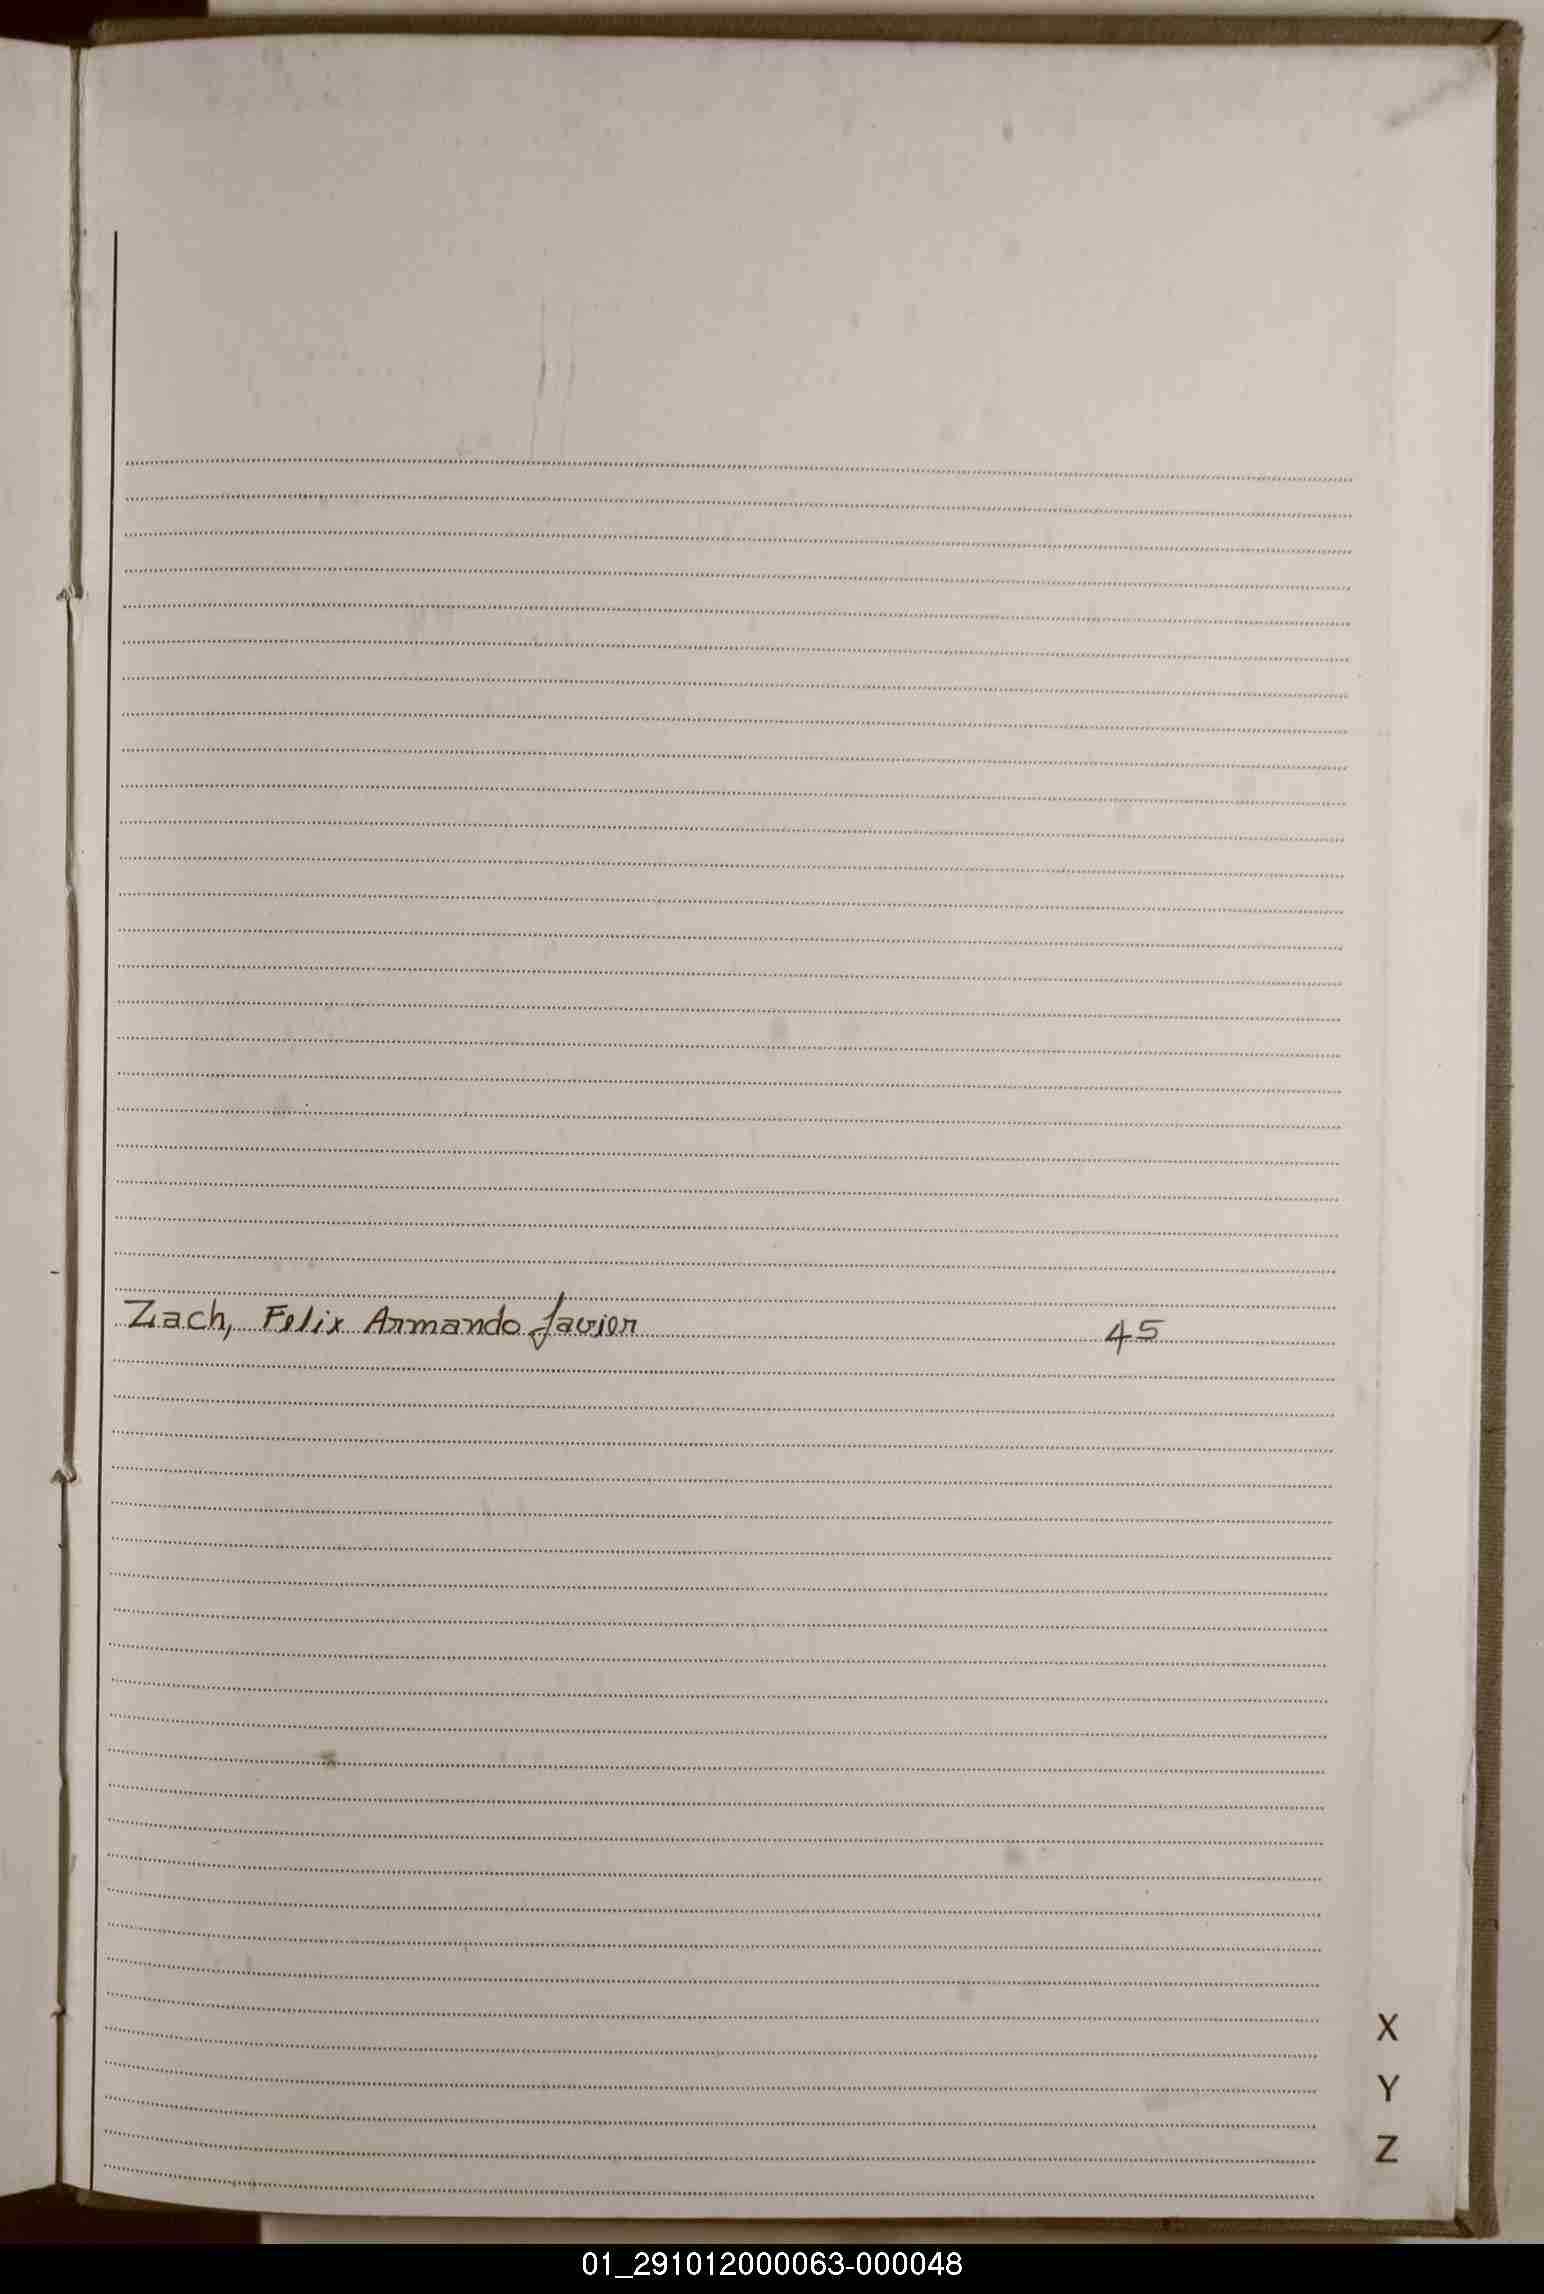 Zach, Felix Armando Javier 45
X
Y
Z
01_291012000063-000048